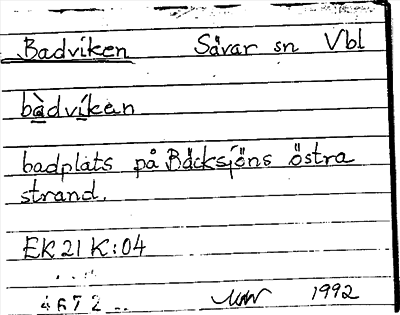 Badviken Sävar sn Vbl
bàdviken
badplats på Bäcksjöns östra
strand.
EK 21 K:04
4672 1992